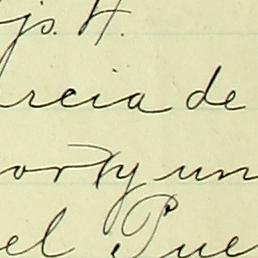 js. H.
rcia de
orty un
el Pue